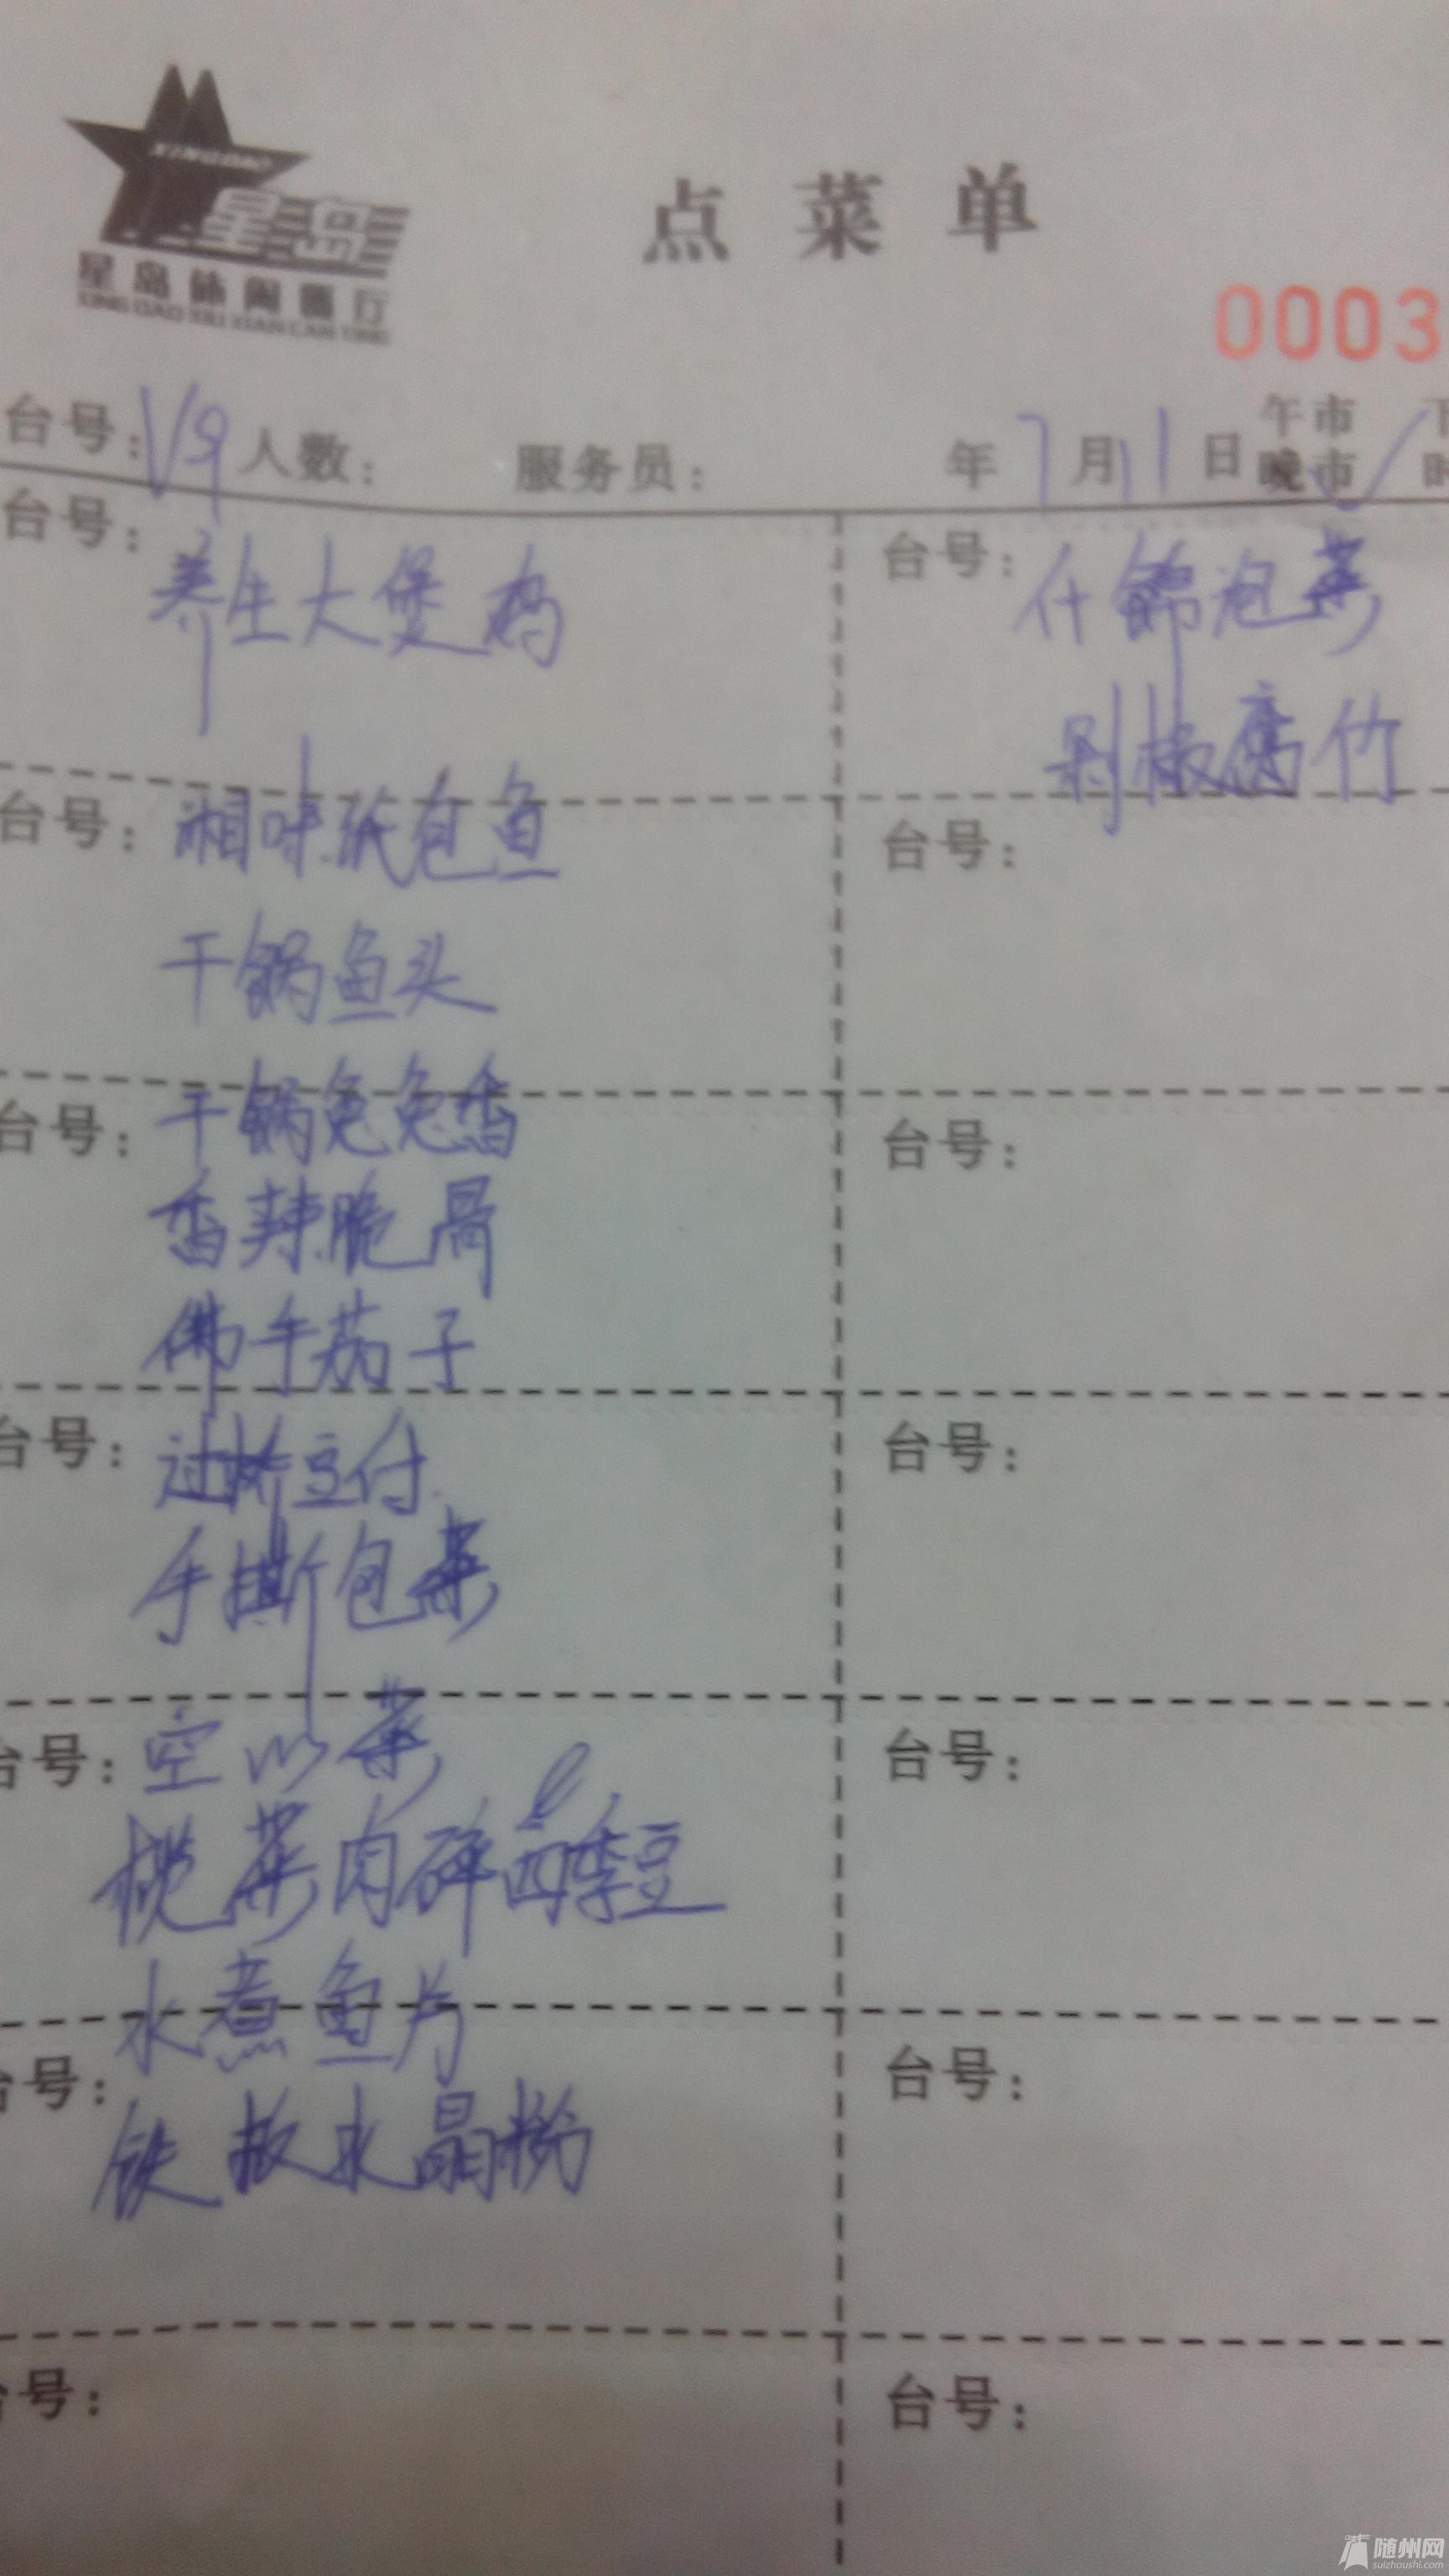 XINGDAO
星岛
星岛休闲餐厅
XING DAO XIU XIAN CAN TING
点菜单
0003
台号: V9 人数: 服务员: 年 7 月 11 日 午市 晚市 ✓
台号: 养生大堡鸡
台号: 什锦泡菜
剁椒腐竹
台号: 湘味纸包鱼
台号:
干锅鱼头
台号: 干锅兔兔香
台号:
香辣脆骨
佛手茄子
台号: 过桥豆付
台号:
手撕包菜
台号: 空心菜
台号:
榄菜肉碎四季豆
水煮鱼片
台号:
台号:
铁板水晶粉
台号:
台号:
随州网
suizhoushi.com